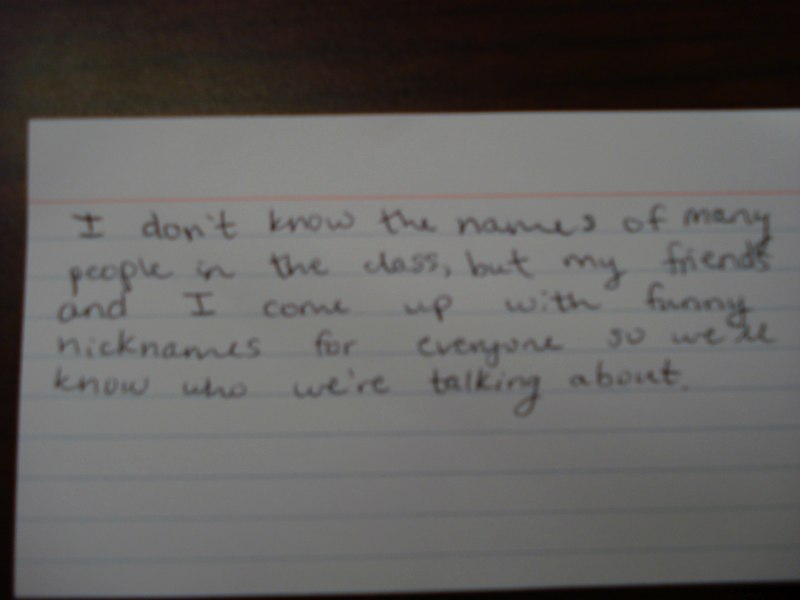 I don't know the names of many
people in the class, but my friends
and I come up with funny
nicknames for everyone so we'll
know who we're talking about.